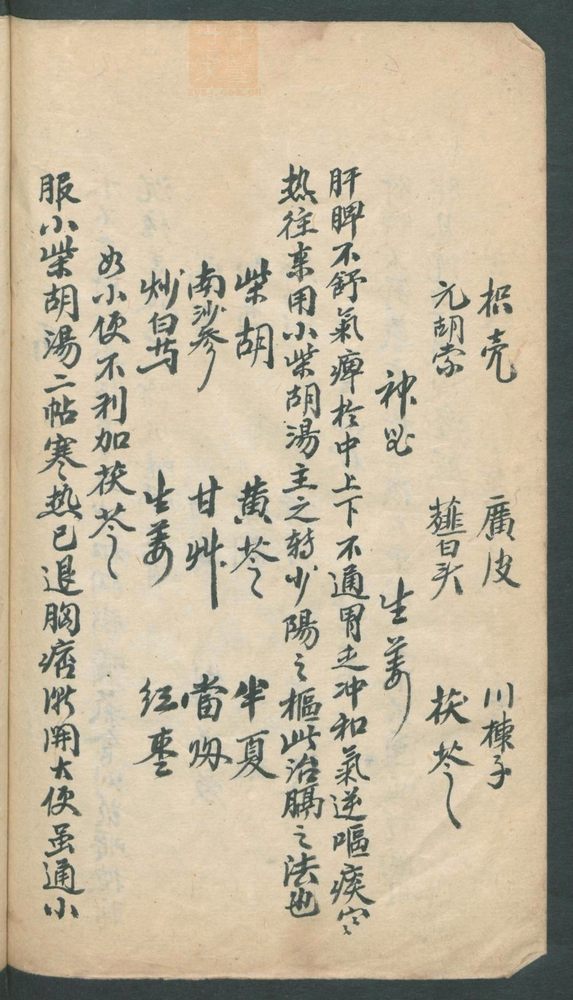 枳壳　廣皮　川楝子
元胡索　薤白头　茯苓
神曲　生姜
肝脾不舒氣痺於中上下不通胃乏冲和氣逆嘔痰寒
热往来用小柴胡湯主之轉少陽之樞此治膈之法也
柴胡　黄芩　半夏
南沙參　甘艸　當歸
炒白芍　生姜　红枣
如小便不利加茯苓
服小柴胡湯二帖寒热已退胸痞渐開大便虽通小